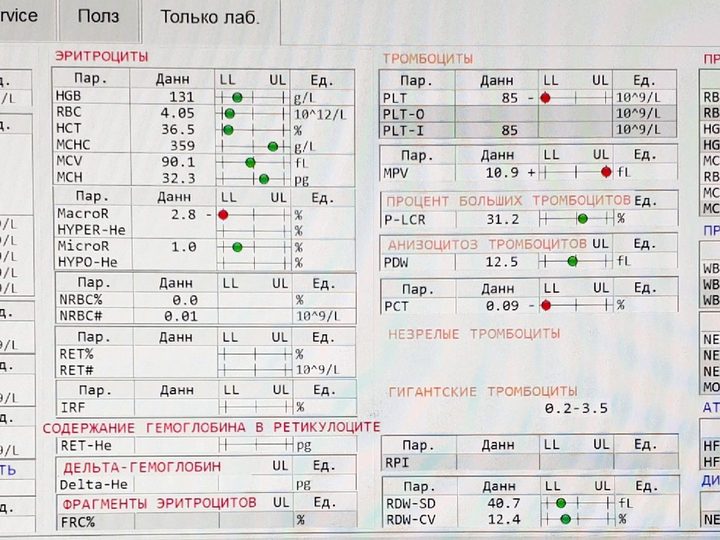 rvice Полз Только лаб.
ЭРИТРОЦИТЫ
Пар. Данн LL UL Ед.
HGB 131 g/L
RBC 4.05 10^12/L
HCT 36.5 %
MCHC 359 g/L
MCV 90.1 fL
MCH 32.3 pg
Пар. Данн LL UL Ед.
MacroR 2.8 - %
HYPER-He %
MicroR 1.0 %
HYPO-He %
Пар. Данн LL UL Ед.
NRBC% 0.0 %
NRBC# 0.01 10^9/L
Пар. Данн LL UL Ед.
RET% %
RET# 10^9/L
Пар. Данн LL UL Ед.
IRF %
СОДЕРЖАНИЕ ГЕМОГЛОБИНА В РЕТИКУЛОЦИТЕ
RET-He pg
ДЕЛЬТА-ГЕМОГЛОБИН UL Ед.
Delta-He pg
ФРАГМЕНТЫ ЭРИТРОЦИТОВ UL Ед.
FRC% %
ТРОМБОЦИТЫ
Пар. Данн LL UL Ед.
PLT 85 - 10^9/L
PLT-O 10^9/L
PLT-I 85 10^9/L
Пар. Данн LL UL Ед.
MPV 10.9 + fL
ПРОЦЕНТ БОЛЬШИХ ТРОМБОЦИТОВ Ед.
P-LCR 31.2 %
АНИЗОЦИТОЗ ТРОМБОЦИТОВ UL Ед.
PDW 12.5 fL
Пар. Данн LL UL Ед.
PCT 0.09 - %
НЕЗРЕЛЫЕ ТРОМБОЦИТЫ
ГИГАНТСКИЕ ТРОМБОЦИТЫ
0.2-3.5
Пар. Данн LL UL Ед.
RPI
Пар. Данн LL UL Ед.
RDW-SD 40.7 fL
RDW-CV 12.4 %